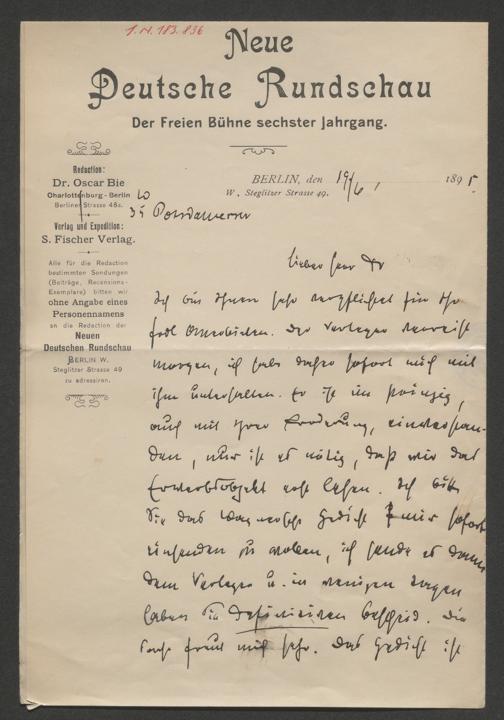 I.N. 183.836
Neue
Deutsche Rundschau
Der Freien Bühne sechster Jahrgang.
Redaction:
Dr. Oscar Bie
Charlottenburg - Berlin
Berliner Strasse 48a.
Verlag und Expedition:
S. Fischer Verlag.
Alle für die Redaction
bestimmten Sendungen
(Beiträge, Recensions-
Exemplare) bitten wir
ohne Angabe eines
Personennamens
an die Redaction der
Neuen
Deutschen Rundschau
BERLIN W.
Steglitzer Strasse 49
zu adressiren.
BERLIN, den 19/6 1895
W., Steglitzer Strasse 49.
35 Potsdamerstr
Lieber Herr Dr
Ich bin Ihnen sehr verpflichtet für Ihr
frdl Anerbieten. Der Verleger verreist
morgen, ich habe daher sofort mich mit
ihm unterhalten. Er ist im Prinzip,
auch mit Ihrer Forderung, einverstan-
den, nur ist es nötig, daß wir das
Erwerbsobjekt erst lesen. Ich bitte
Sie das Wagnersche Gedicht mir sofort
einsenden zu wollen, ich sende es dann
dem Verleger u. in wenigen Tagen
haben Sie definitiven Bescheid. Die
Sache freut mich sehr. Das Gedicht ist